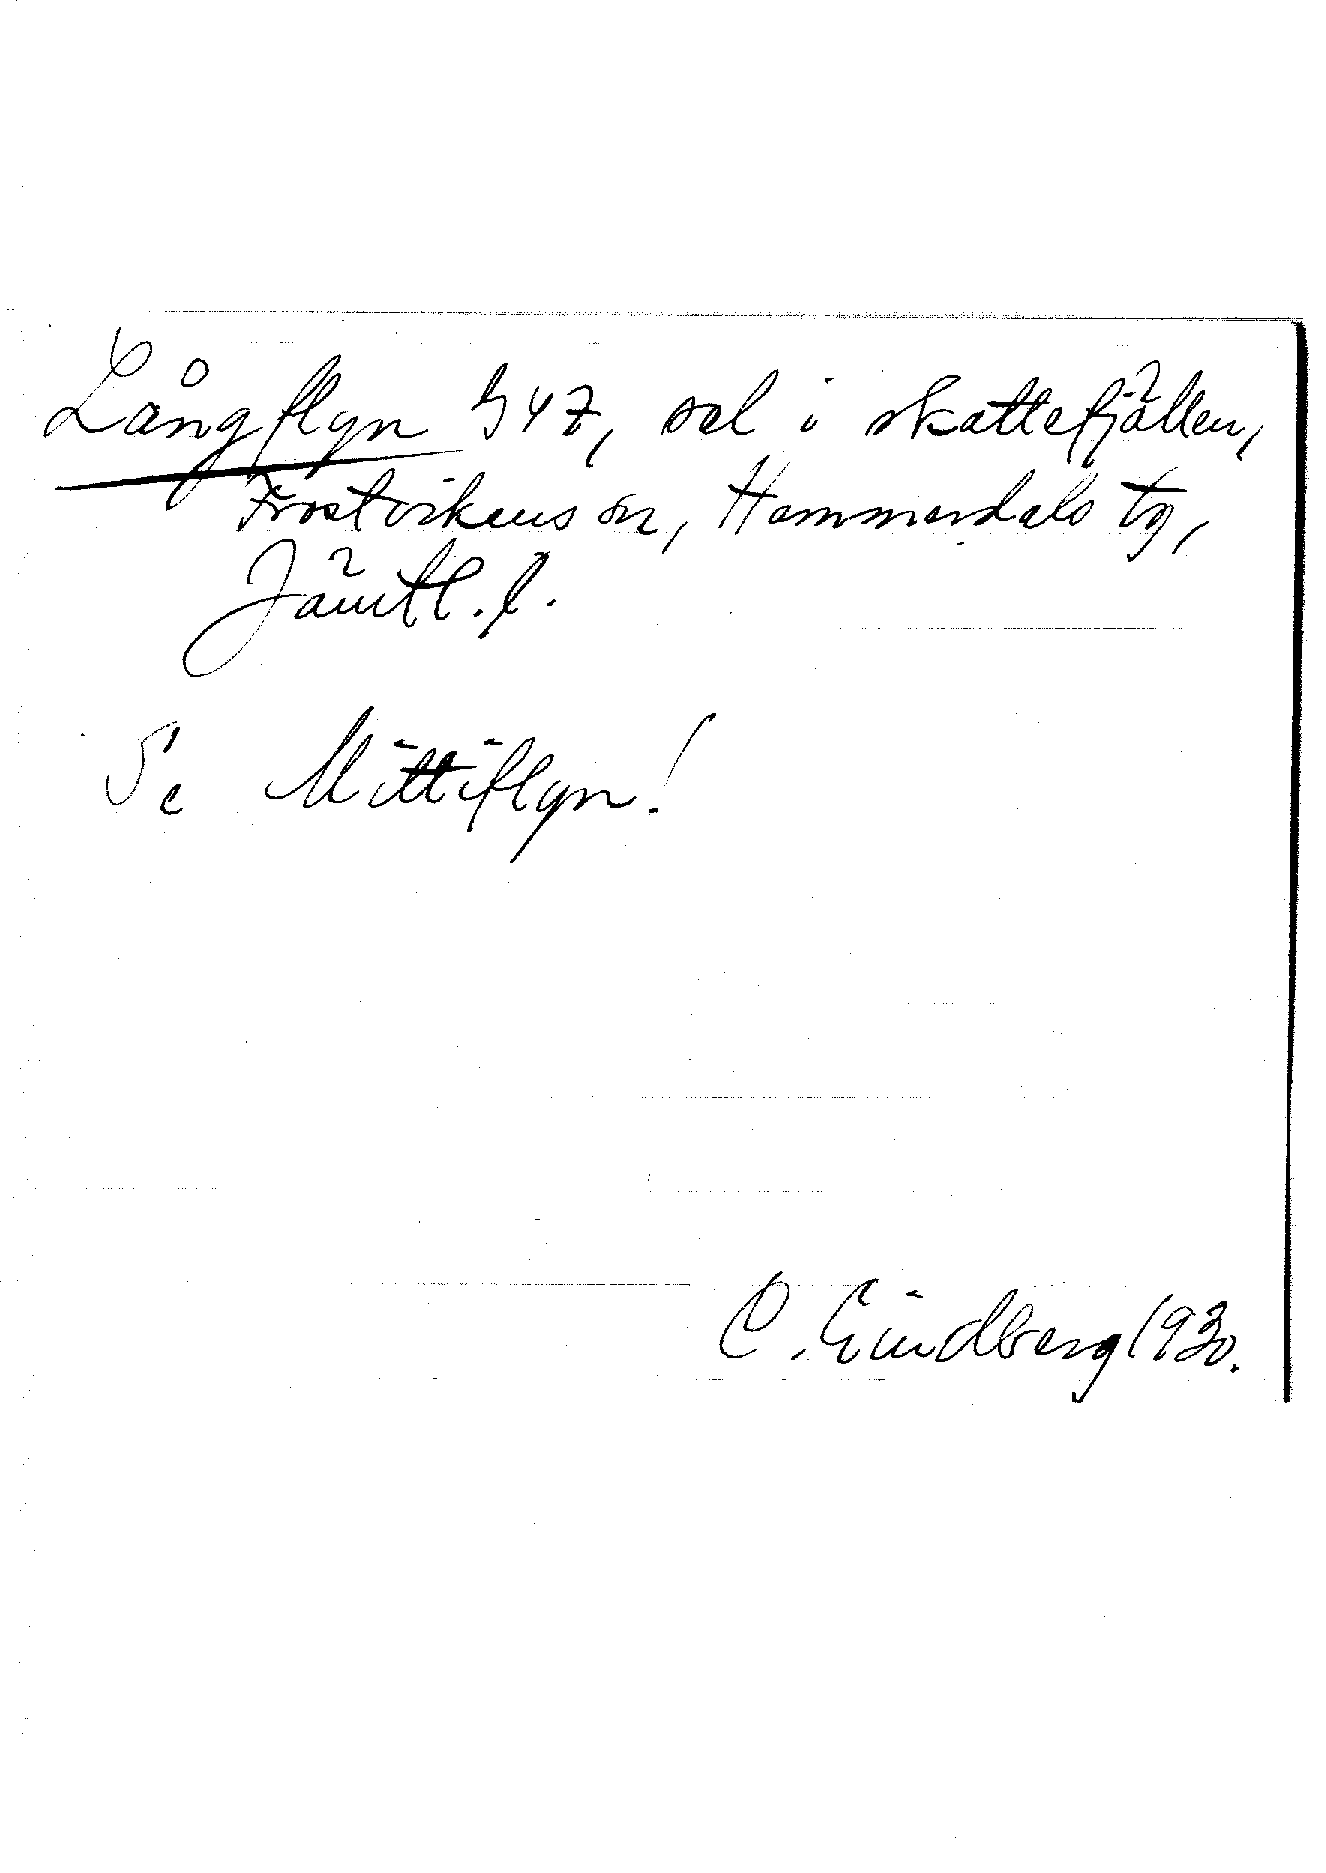 Långflyn h47, sel i skattefjällen,
Frostvikens sn, Hammerdals tg,
Jämtl. l.
Se Mittiflyn!
C. Lindberg 1930.